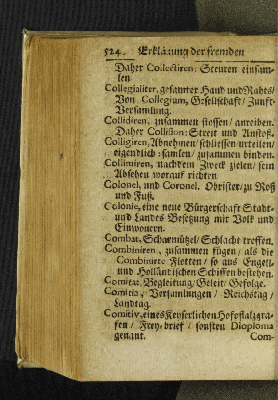 524. Erklärung der fremden
Daher Collectiren: Steuren einsam-
len
Collegialiter, gesamter Hand und Rahts/
Von Collegium, Gesellschaft/ Zunft/
Versamlung.
Collidiren, zusammen stossen/ anreiben.
Daher Collision: Streit und Anstoß.
Colligiren, Abnehmen/ schliessen urteilen/
eigendlich: samlen/ zusammen binden.
Collimiren, nach dem Zweck zielen/ sein
Absehen worauf richten
Colonel, und Coronel. Obrister/ zu Roß
und Fuß.
Colonie, eine neue Bürgerschaft Stadt-
und Landes Besetzung mit Volk und
Einwonern.
Combat, Scharmützel/ Schlacht treffen.
Combiniren, zusammen fügen/ als die
Combinirte Flotten/ so aus Engell-
und Holländischen Schiffen bestehen.
Comitat, Begleitung/ Gleit/ Gefolge.
Comitia, Versamlungen/ Reichstag/
Landtag.
Comitiv, eines Keyserlichen Hofpfaltzgra-
fen/ Frey-brief/ sonsten Dioploma
genant. Com-